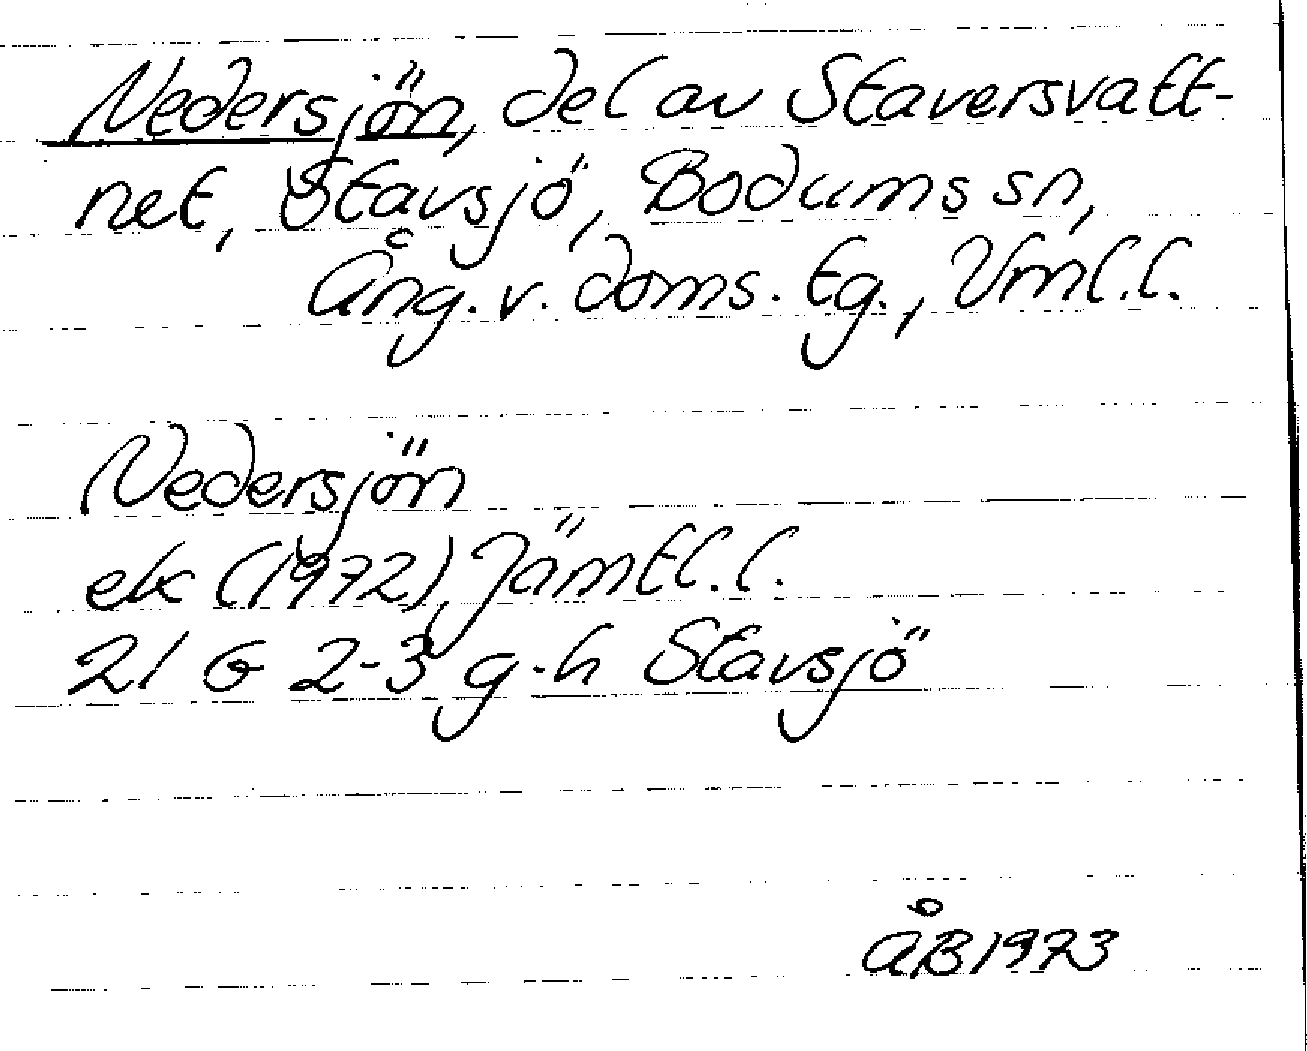 Nedersjön, del av Staversvatt-
net, Stavsjö, Bodums sn,
Ång. v. doms. tg., Vml.l.
Nedersjön
ek (1972), Jämtl.l.
21 G 2-3 g-h Stavsjö
ÅB 1973